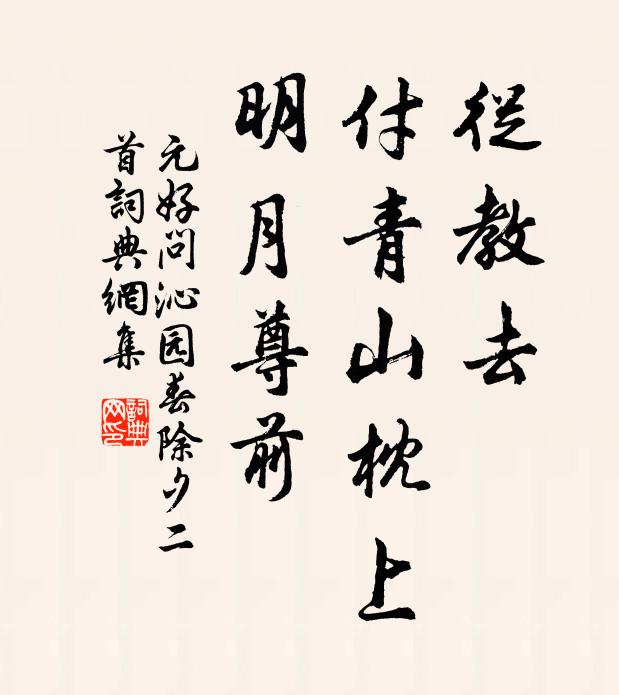 從教去
付青山枕上
明月尊前
元好问沁园春除夕二
首詞典網集
詞典網印